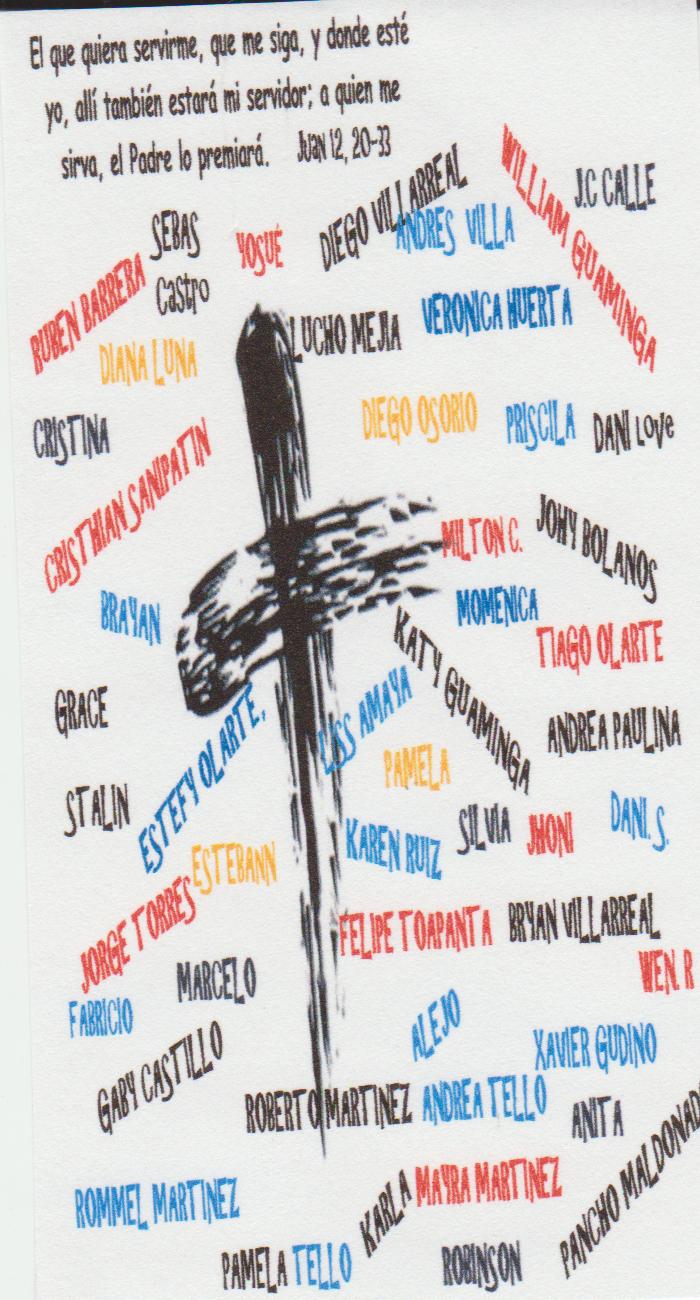 El que quiera servirme, que me siga, y donde esté
yo, allí también estará mi servidor; a quien me
sirva, el Padre lo premiará. Juan 12, 20-33
WILLIAM GUAMINGA
J.C CALLE
DIEGO VILLARREAL
SEBAS
Castro
YOSUÉ
ANDRES VILLA
RUBEN BARRERA
LUCHO MEJIA
VERONICA HUERTA
DIANA LUNA
CRISTINA
DIEGO OSORIO
PRISCILA
DANI LOVe
CRISTHIAN SANIPATIN
MILTON C.
JOHY BOLANOS
BRAYAN
MOMENICA
TIAGO OLARTE
KATY GUAMINGA
GRACE
ESTEFY OLARTE,
LISS AMAYA
ANDREA PAULINA
PAMELA
STALIN
KAREN RUIZ
SILVIA
JHONI
DANI. S.
ESTEBANN
JORGE TORRES
FELIPE TOAPANTA
BRYAN VILLARREAL
MARCELO
WEN. R
FABRICIO
ALEJO
XAVIER GUDINO
GABY CASTILLO
ROBERTO MARTINEZ
ANDREA TELLO
ANITA
PANCHO MALDONAD
ROMMEL MARTINEZ
KARLA
MAYRA MARTINEZ
PAMELA TELLO
ROBINSON